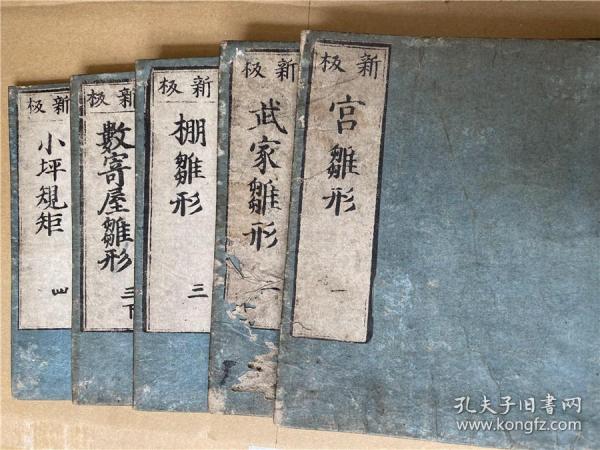 新板
宮雛形
一
新板
武家雛形
二
新板
棚雛形
三
新板
數寄屋雛形
三下
新板
小坪規矩
四
孔夫子旧書网
www.kongfz.com